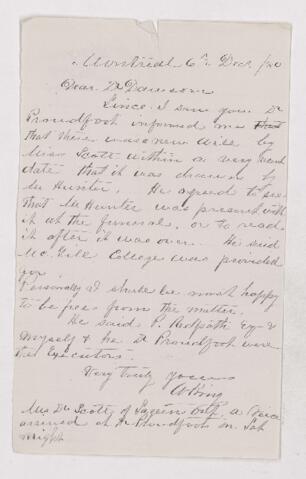 Montreal 6th Decr /80
Dear Dr Dawson
Since I saw you Dr
Proudfoot informed me that
that there was a new will by
Miss Scott within a very recent
date that it was drawn by
Mr Hunter. He agreed to see
that Mr Hunter was present with
it at the funeral, or to read
it after it was over. He said
McGill College was provided
for.
Personally I shall be most happy
to be free from the matter.
He said P. Redpath Esq &
Myself & he Dr Proudfoot were
the Executors.
Very truly yours
King
Mrs Dr Scott of a
arrived at Dr Proudfoot on
night